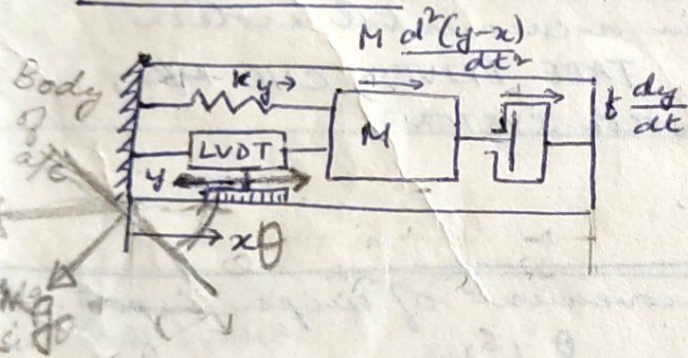 M d²(y-x)
dt²
Body
of
a/c
Ky→
LVDT
M
f dy
dt
y
x
θ
Mg